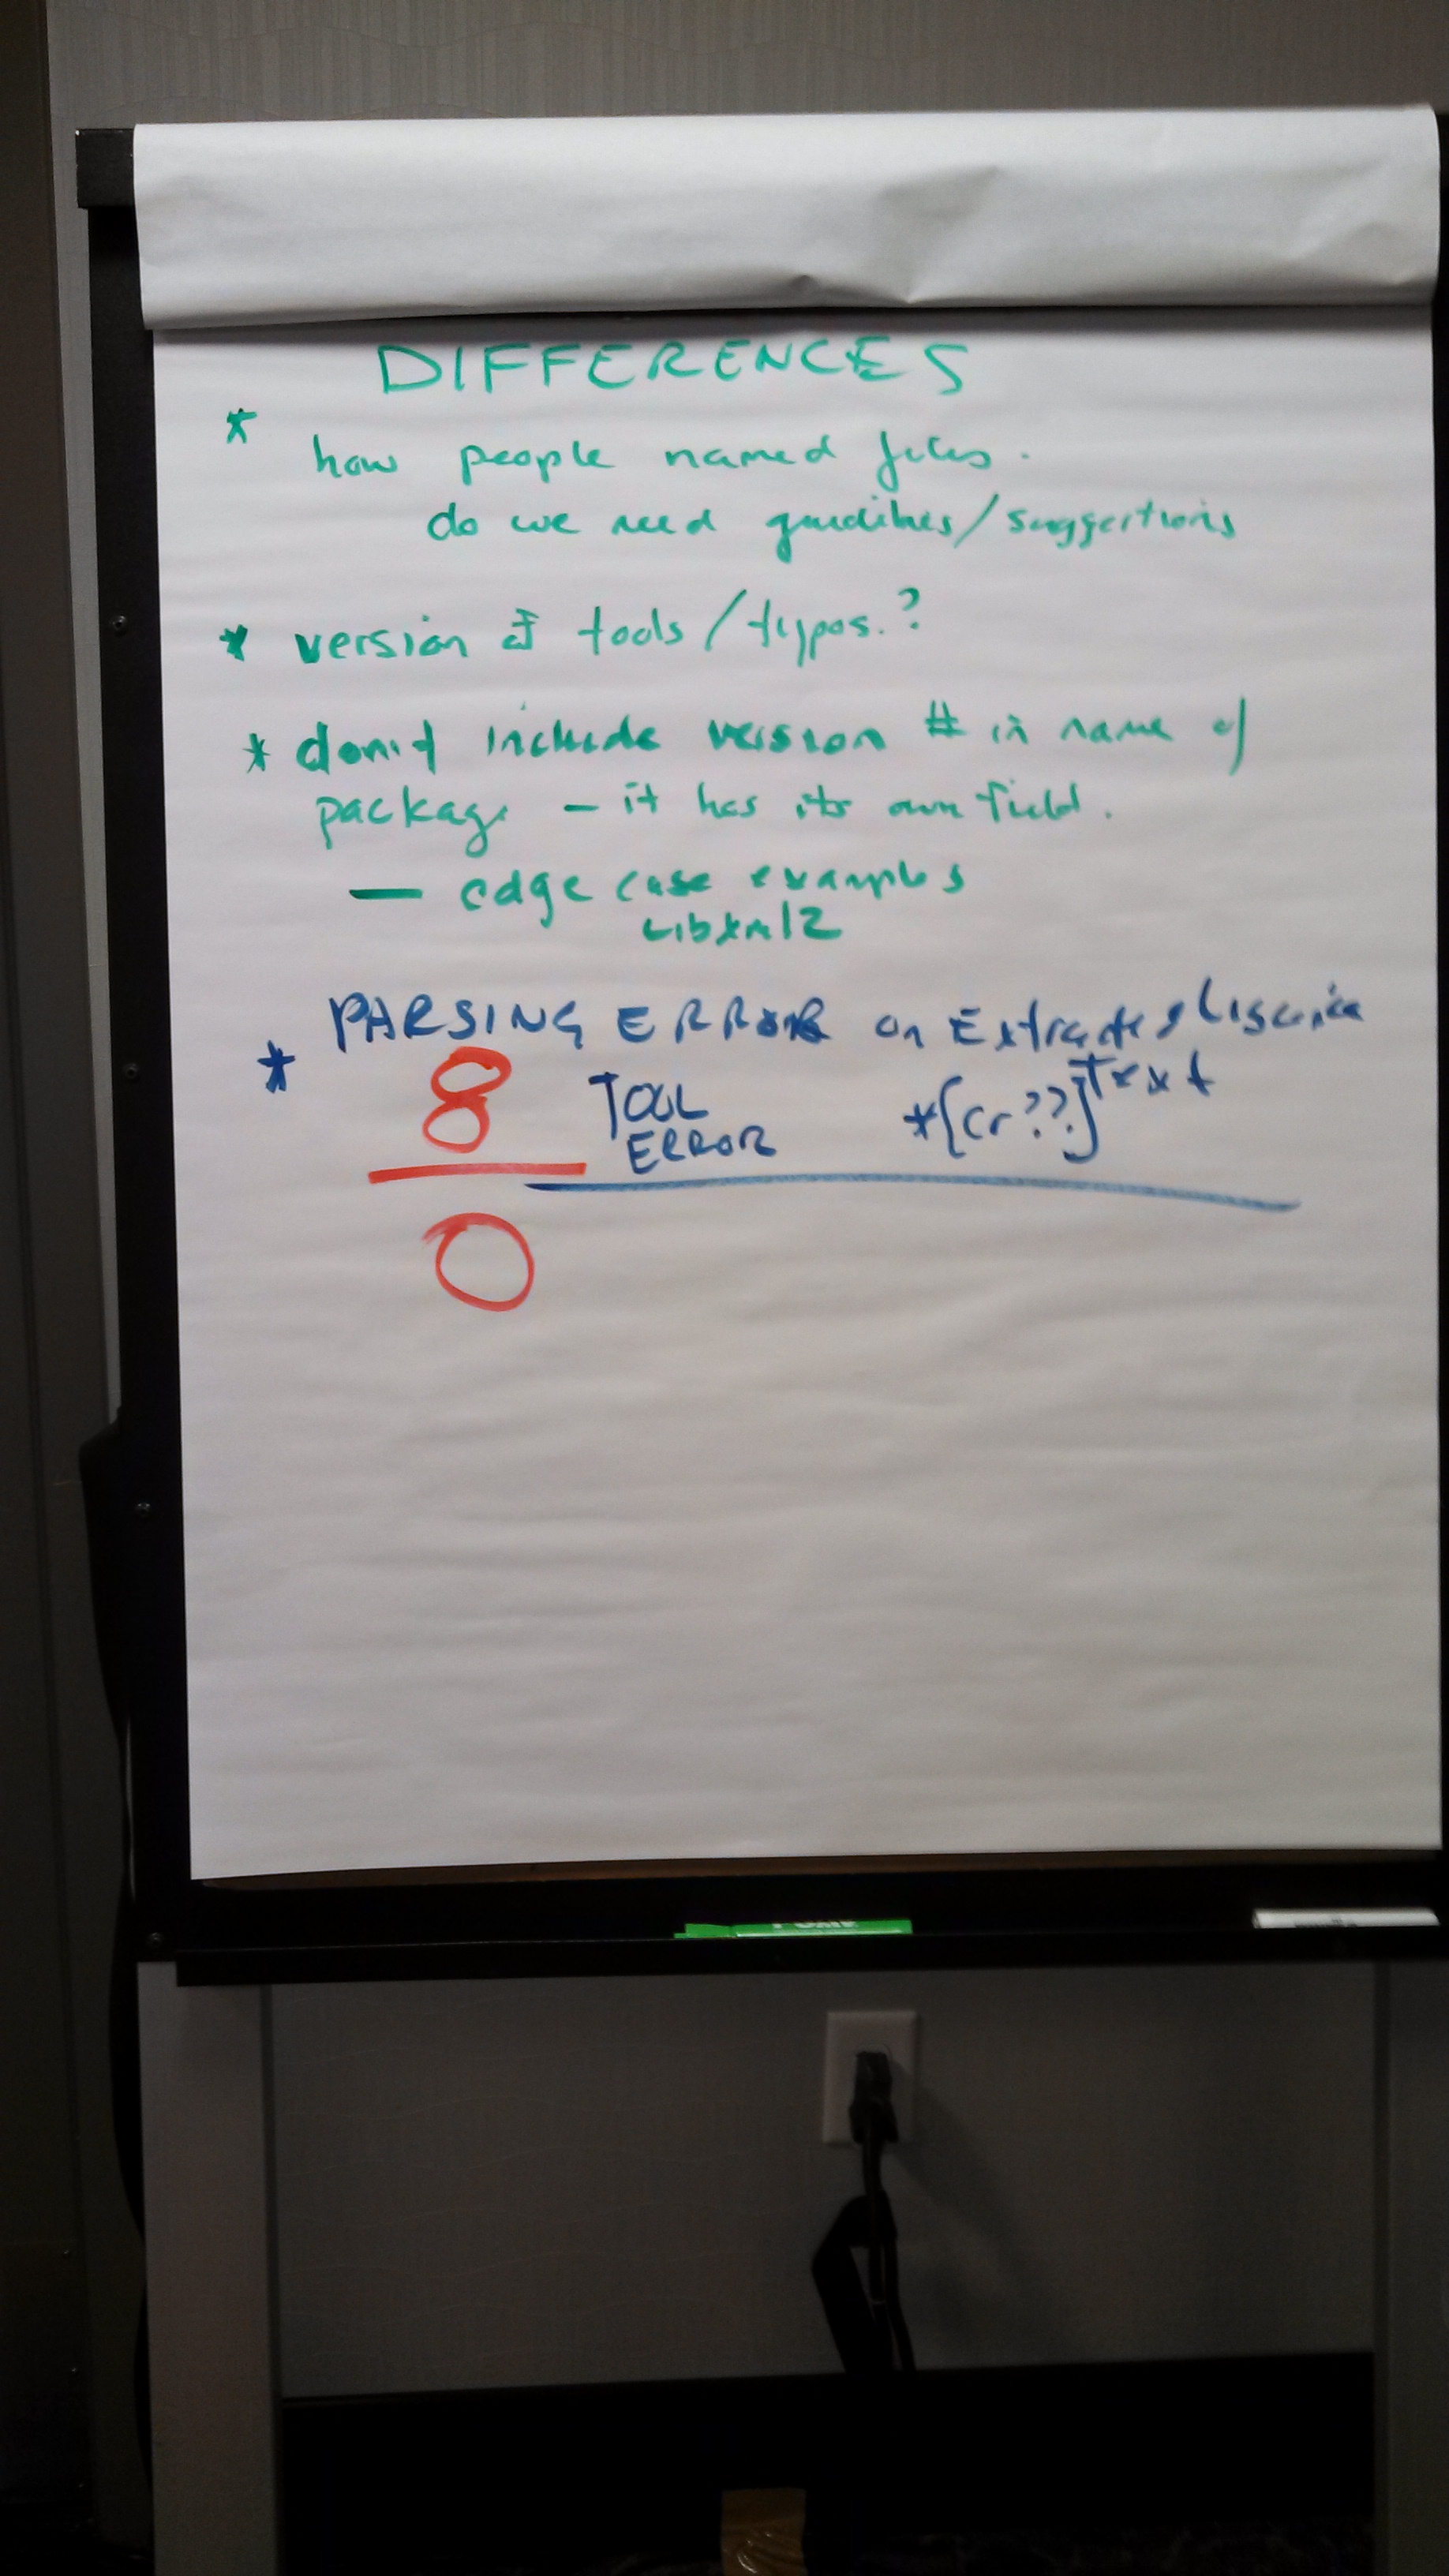 DIFFERENCES
* how people named files.
do we need guidlines/suggestions
* version of tools/typos.?
* don't include version # in name of
package - it has its own field.
— edge case examples
Libxml2
* PARSING ERROR on Extracted License
Text
8 TOOL *[cr??]
ERROR
0